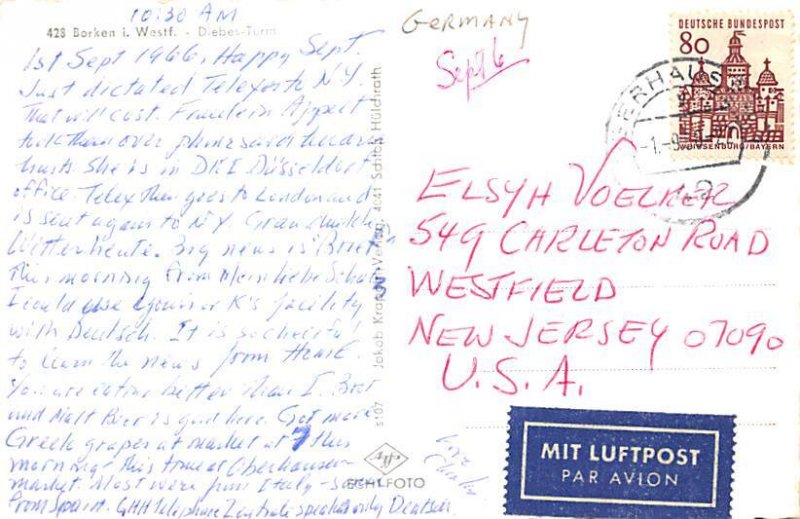 10:30 AM
428 Borken i. Westf. - Diebes-Turm
1st Sept 1966, Happy Sept.
Just dictated Telex to N.Y.
That will cost. Fraulein Appelt
took them over phone said
hurts She is in DKI Düsseldorf
office. Telex then goes to London and
is sent again to NY.
Wetter heute. Big news is Brief
this morning from Mein liebe Schatz
I could use yours or K's facility
with Deutsch. It is so cheerful
to learn the news from Home.
You are eating better than I. Brot
und Malt Bier is good here. Got more
Greek grapes at market at 7 this
morning - this time at Oberhausen
market. Most were from Italy - some
from Spain. GHH Telephone Zentrale speaks only Deutsch
Love
Charlie
s107 Jakob Krapohl-Verlag, 4041 Schloß Hülchrath
ECHTFOTO
GERMANY
Sept 6
DEUTSCHE BUNDESPOST
80
ELLINGEN-WEISSENBURG/BAYERN
OBERHAUSEN
ELSYH VOELKER
549 CARLETON ROAD
WESTFIELD
NEW JERSEY 07090
U.S.A.
MIT LUFTPOST
PAR AVION